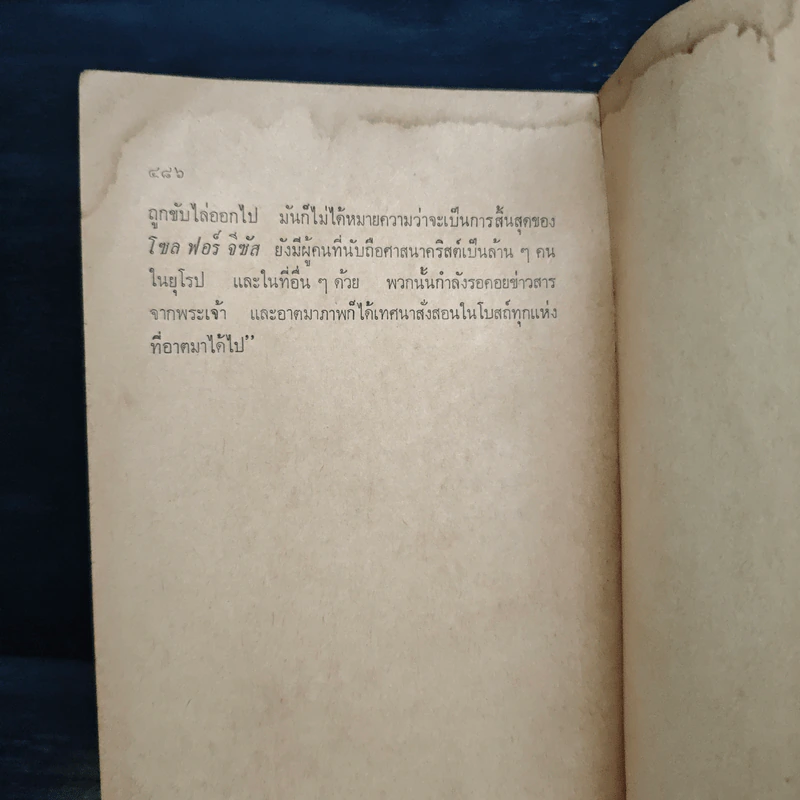 ๔๘๖
ถูกขับไล่ออกไป มันก็ไม่ได้หมายความว่าจะเป็นการสิ้นสุดของ
โซล ฟอร์ จีซัส ยังมีผู้คนที่นับถือศาสนาคริสต์เป็นล้าน ๆ คน
ในยุโรป และในที่อื่น ๆ ด้วย พวกนั้นกำลังรอคอยข่าวสาร
จากพระเจ้า และอาตมาภาพก็ได้เทศนาสั่งสอนในโบสถ์ทุกแห่ง
ที่อาตมาได้ไป”